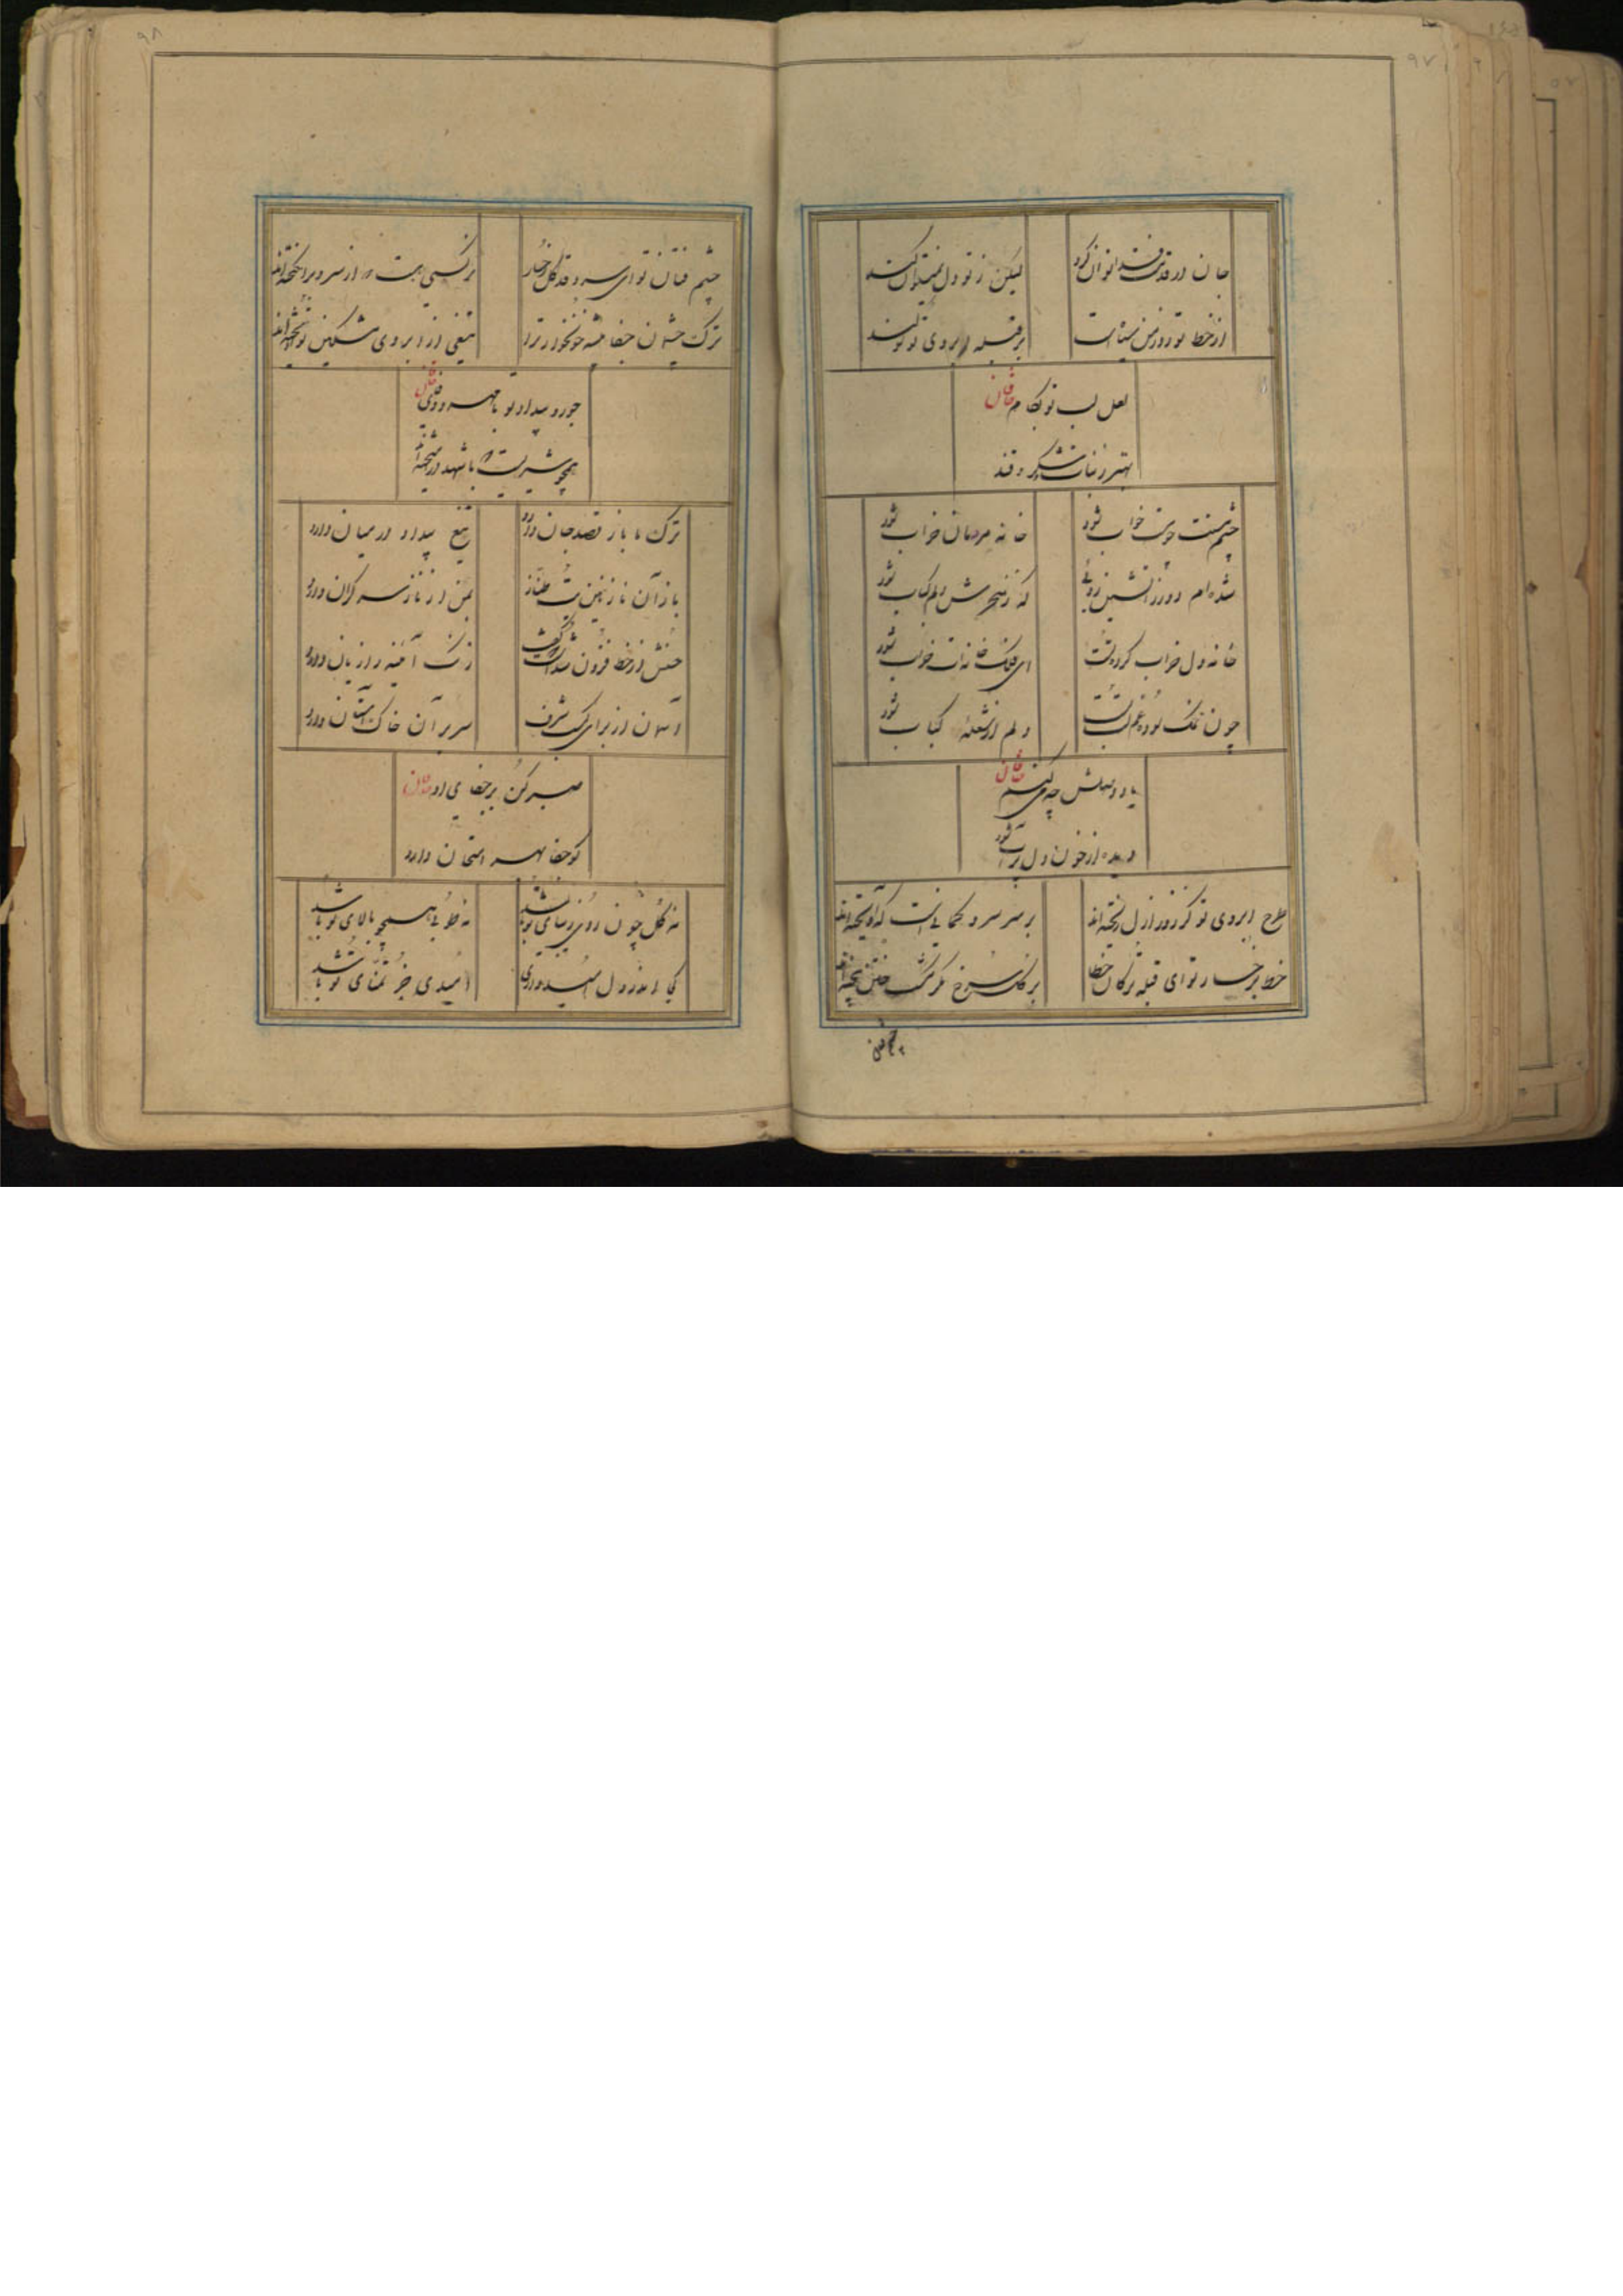 ۹۷
جان در قدمت فدا توان کرد
لیکن ز تو دل نمیتوان کند
از خط تو روز من سیاه است
بر قبله ابروی تو سوگند
لعل لب تو بکام خاقان
بهتر ز نبات و شکر و قند
چشم مستت چو مست خواب شود
خانه مردمان خراب شود
شده‌ام دوزخ
که ز هجرش دلم کباب شود
خانه دل خراب کرده تست
ای فلک خانه‌ات خراب شود
چون نمک سوده غم لب تست
دلم از شعله کباب شود
یاد وصلش چو میکنم خاقان
دیده از خون دل پر آب شود
طرح ابروی تو کز روز ازل ریخته‌اند
بر سر سرو کمانی است که آویخته‌اند
خط بر رخسار تو ای قبله ترکان خطا
بر گل سرخ مگر مشک ختن بیخته‌اند
چشم فتان
۹۸
چشم فتان تو ای سرو قد گل رخسار
نرگسی هست که از سرو برانگیخته‌اند
ترک چشمان جفا پیشه خونخوار ترا
تیغی از ابروی مشکین تو آویخته‌اند
جور و بیداد تو با مهر و وفا خاقان
همچو شیریست که با شهد در آمیخته‌اند
ترک ما باز قصد جان دارد
تیغ بیداد در میان دارد
باز آن نازنین بت طناز
بمن از ناز سر گران دارد
حسنش از خط فزون شد ار گویند
زنگ آئینه را زیان دارد
آسمان از برای کسب شرف
سر بر آن خاک آستان دارد
صبر کن بر جفای او خاقان
کو جفا بهر امتحان دارد
نه گل چون روی زیبای تو باشد
نه طوبی همچو بالای تو باشد
کجا اندر دل امیدواری
امیدی جز تمنای تو باشد